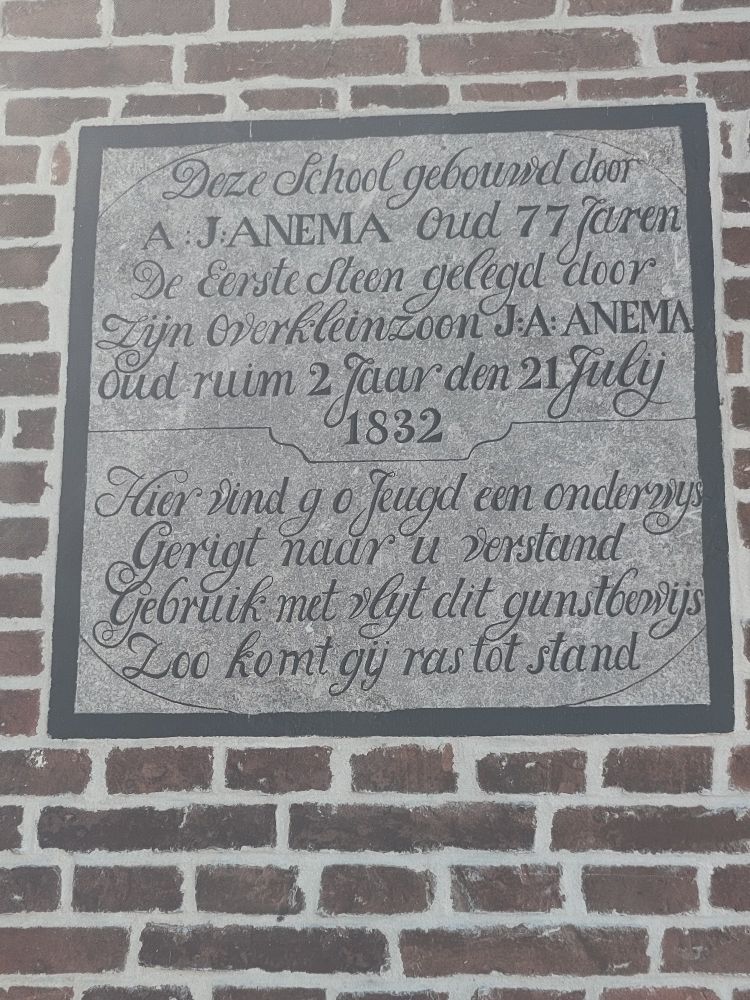 Deze School gebouwd door
A:J:ANEMA oud 77 Jaren
De Eerste Steen gelegd door
Zijn Overkleinzoon J:A:ANEMA
oud ruim 2 Jaar den 21 Julij
1832
Hier vind g o Jeugd een onderwys
Gerigt naar u verstand
Gebruik met vlyt dit gunstbewijs
Zoo komt gij ras tot stand